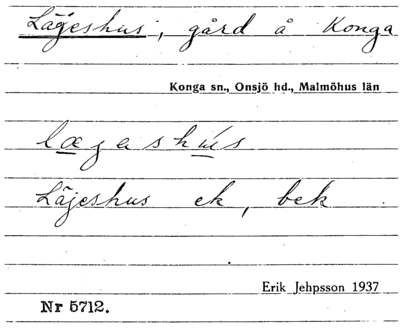 Lägeshus, gård å Konga
Konga sn., Onsjö hd., Malmöhus län
lægashus
Läjeshus ek, bek
Erik Jehpsson 1937
Nr 5712.